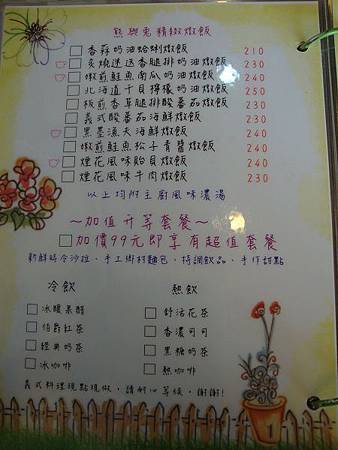 熊與兔精緻燉飯
香蒜奶油蛤蜊燉飯 210
炙燒迷迭香腿排奶油燉飯 230
嫩煎鮭魚南瓜奶油燉飯 240
北海道干貝檸檬奶油燉飯 250
板煎香草腿排酸蕃茄燉飯 230
義式酸蕃茄海鮮燉飯 230
黑墨漁夫海鮮燉飯 240
嫩煎鮭魚松子青醬燉飯 240
煙花風味鮑貝燉飯 240
煙花風味牛肉燉飯 230
以上均附主廚風味濃湯
～加值升等套餐～
加價99元即享有超值套餐
新鮮時令沙拉、手工鄉村麵包、特調飲品、手作甜點
冷飲 熱飲
冰釀果醋 舒活花茶
伯爵紅茶 香濃可可
經典奶茶 黑糖奶茶
冰咖啡 熱咖啡
義式料理現點現做，請耐心等候，謝謝！
1